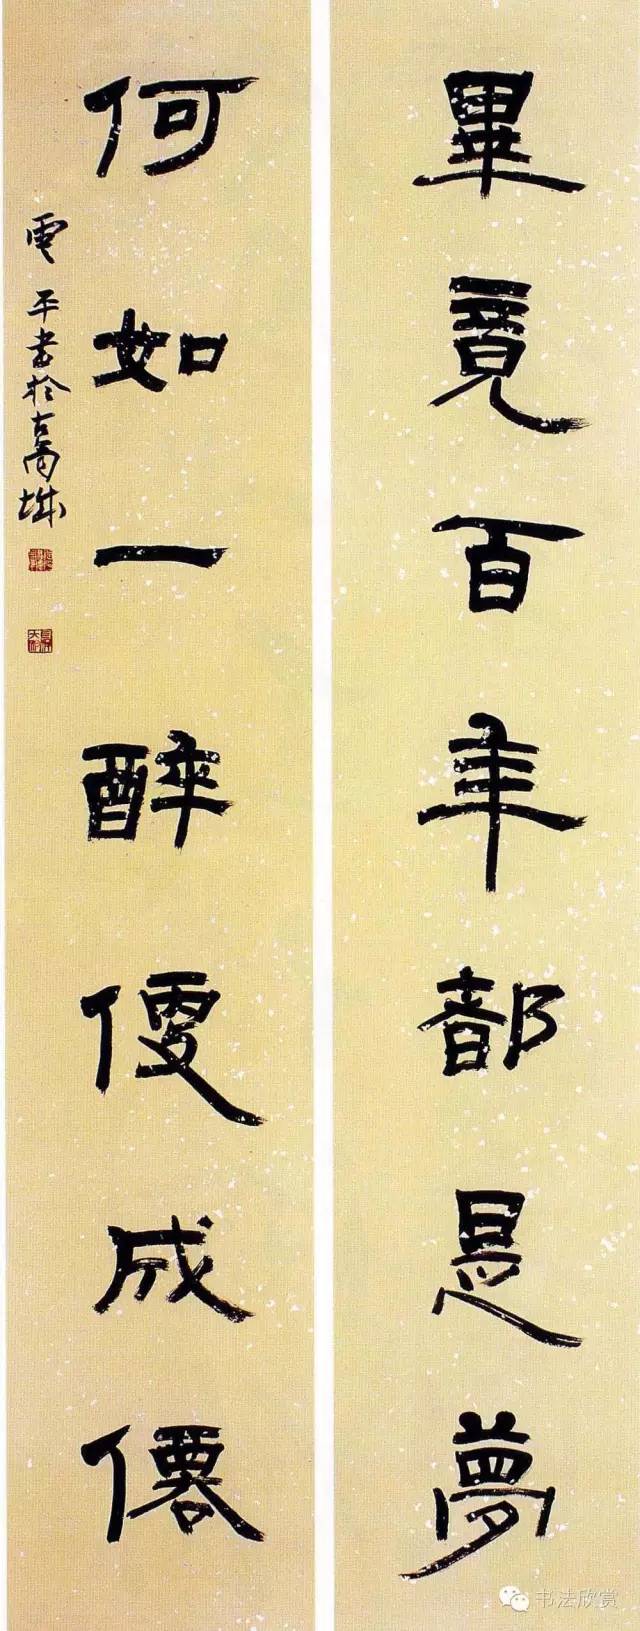 畢竟百年都是夢
何如一醉便成僊
雲平書於古蕭城
书法欣赏